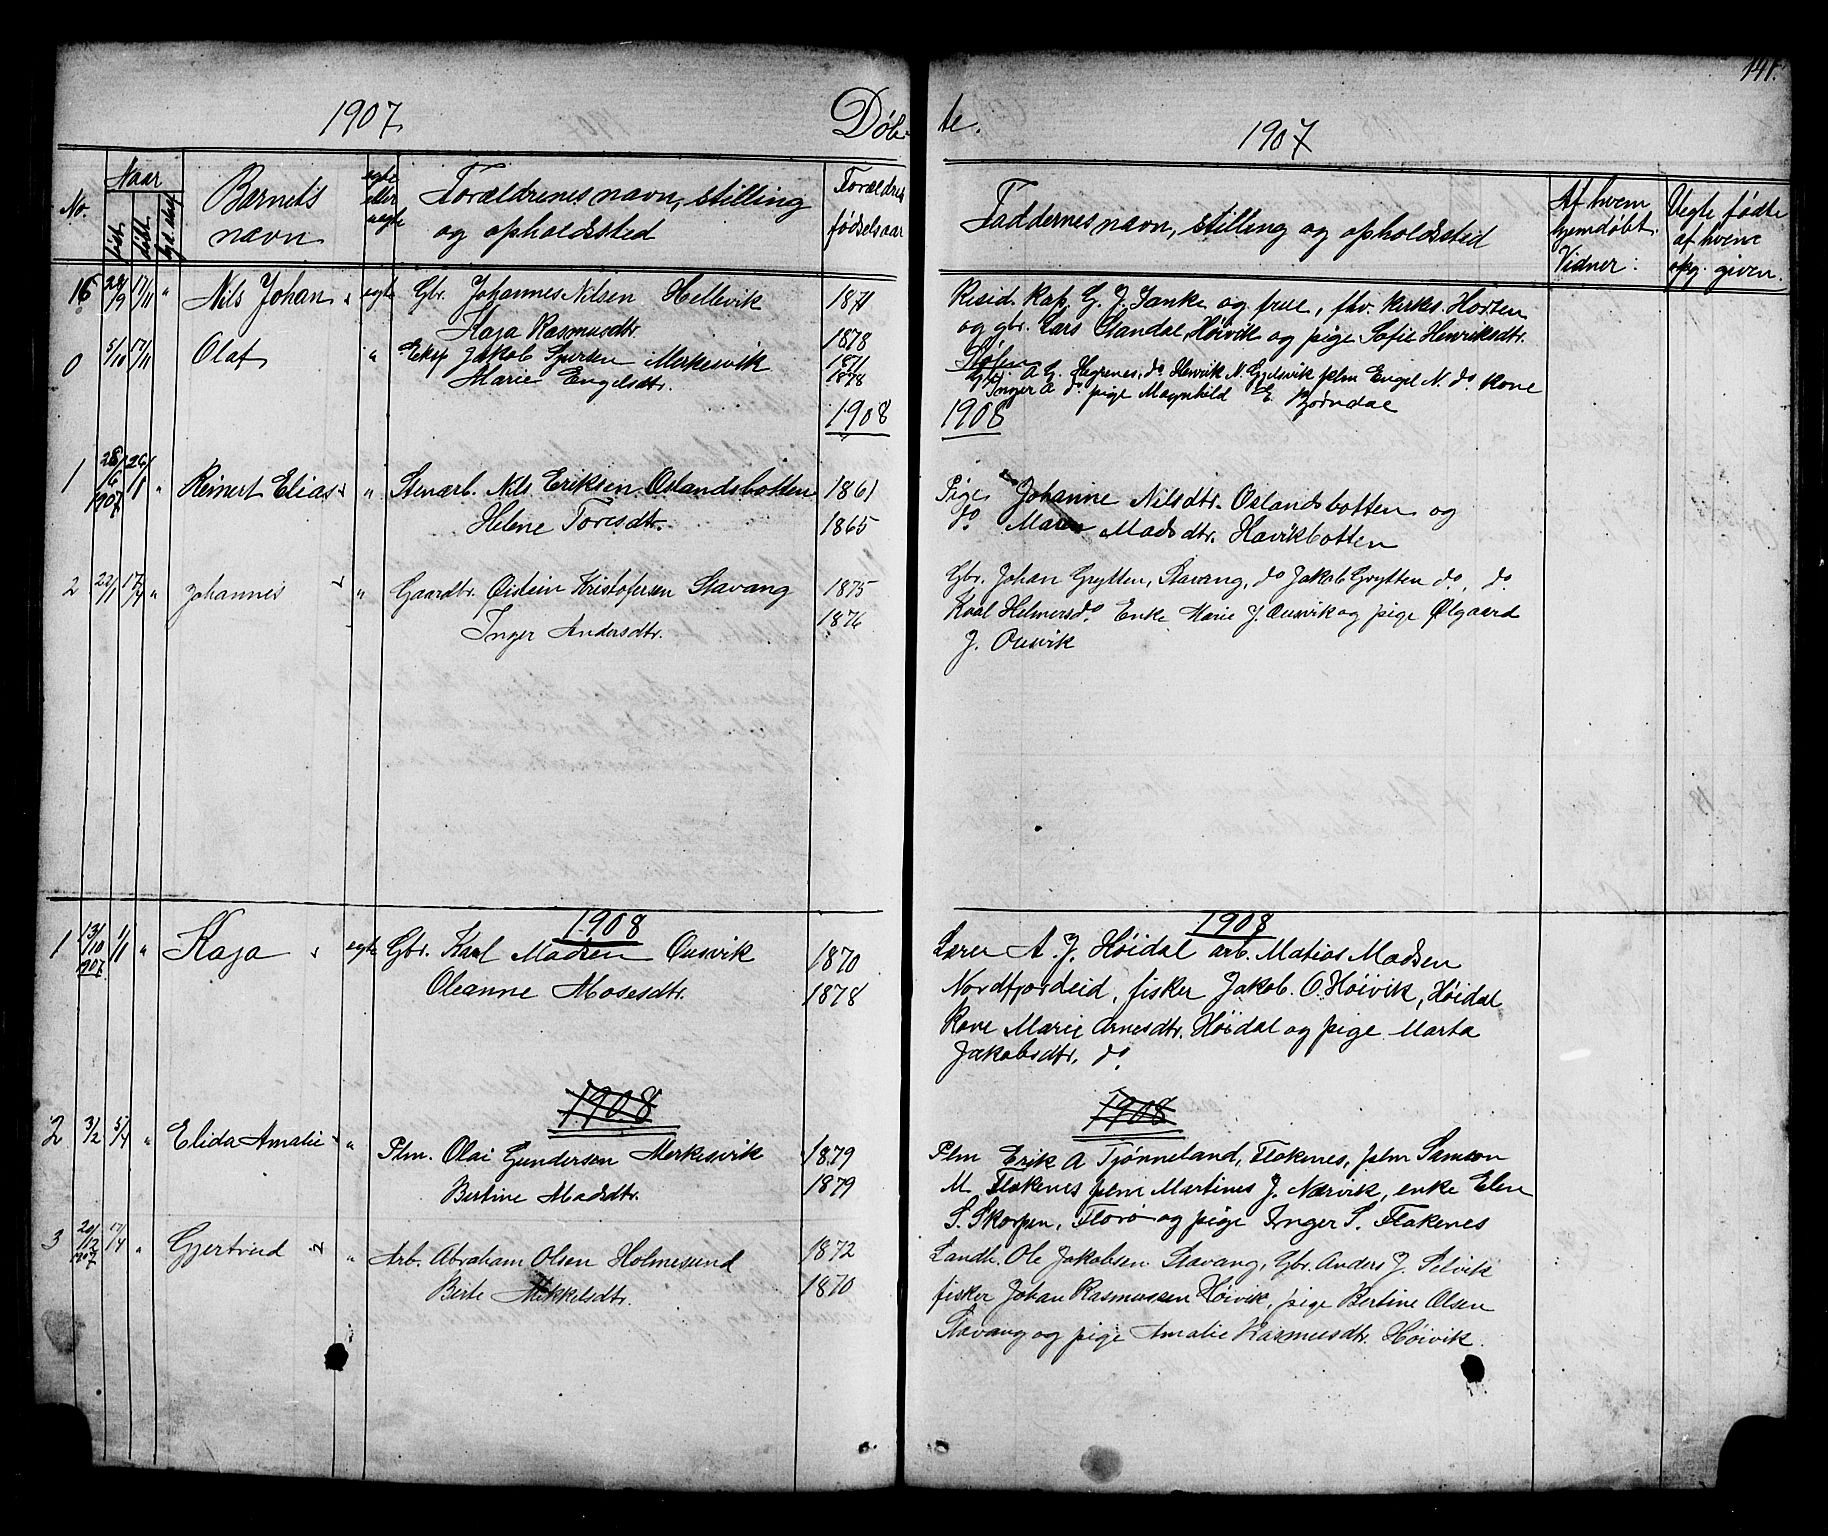 141.
1907 Døb- te. 1907
No. Naar Barnets navn egte eller uegte Forældrenes navn, stilling og opholdssted Forældrenes fødselsaar Faddernes navn, stilling og opholdssted Af hvem hjemdøbt. Vidner: Uegte fødte af hvem opg. given.
født døbt
16 24/9 17/11 " Nils Johan egte Gbr. Johannes Nilsen Hellevik 1871
Kaja Rasmusdtr. 1878
Resid. Kap. G. J. Janke og frue, fhv. kirkes. Horten
og gbr. Lars Standal, Høivik og pige Sofie Henriksdtr.
0 5/10 17/11 Olaf " Eksp Jakob Syvrsen Merkesvik 1871
Marie Engelsdtr. 1878
Gbr. A. G. Hegrenes, do Henrik N. Gjelsvik plm Engel N. do kone
Inger A do pige Magnhild E. Bjørndal
1908 1908
1 28/6 1907 26/1 " Reinert Elias " Stenarb. Nils Eriksen Oslandsbotten 1861
Helene Toresdtr. 1865
Pige Johanne Nilsdtr. Oslandsbotten og
do Maren Madsdtr. Høvikbotten
2 22/1 17/4 " Johannes " Gaardbr. Øistein Kristofersen Stavang 1875
Inger Andersdtr. 1876
Gbr. Johan Grytten, Stavang, do Jakob Grytten do, do
Karl Helmers do. Enke Marie J. Ousvik og pige Ølgaard
J. Ousvik
1908 1908
1 13/10 1907 1/1 " Kaja egte Gbr. Karl Madsen Ousvik 1870
Oleanne Mosesdtr. 1878
Lærer A. J. Høidal arb. Matias Madsen
Nordfjordeid, fisker Jakob. O. Høivik, Høidal
Kone Marie Arnesdtr. Høidal og pige Marta
Jakobsdtr. do
1908 1908
2 3/2 5/4 " Elida Amalie " Plm. Olai Gundersen Merkesvik 1879
Bertine Madsdtr. 1879
Plm Erik A Tjønneland, Flokenes, plm Samson
M. Flokenes plm Martines J. Nærvik, enke Elen
S. Skorpen, Florø og pige Inger S. Flokenes
3 20/12 1907 17/4 " Gjertrud " Arb. Abraham Olsen Holmesund 1872
Berte Mikkelsdtr. 1870
Landh. Ole Jakobsen Stavang, Gbr. Anders J. Selvik
fisker Johan Rasmussen Høivik, pige Bertine Olsen
Stavang og pige Amalie Rasmusdtr. Høivik.